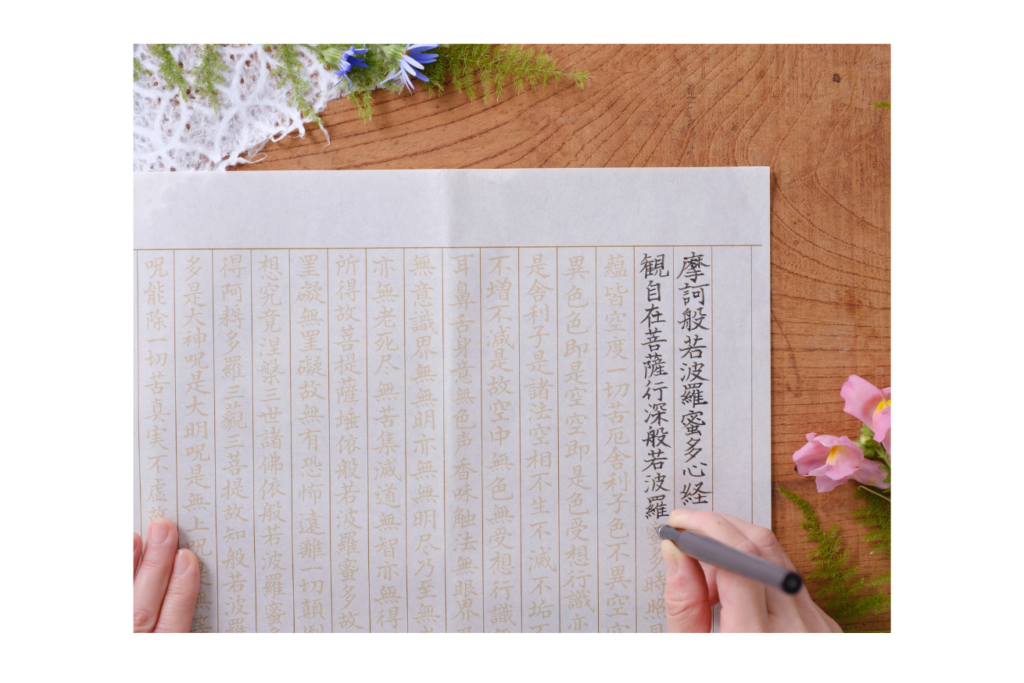 摩訶般若波羅蜜多心経
観自在菩薩行深般若波羅多時照
蘊皆空度一切苦厄舎利子色不異空空
異色色即是空空即是色受想行識亦
是舎利子是諸法空相不生不滅不垢不
不増不減是故空中無色無受想行識
耳鼻舌身意無色声香味触法無眼界乃
無意識界無無明亦無無明尽乃至無
亦無老死尽無苦集滅道無智亦無得
所得故菩提薩埵依般若波羅蜜多故
罣礙無罣礙故無有恐怖遠離一切顛倒
想究竟涅槃三世諸佛依般若波羅蜜多
得阿耨多羅三藐三菩提故知般若波羅
多是大神呪是大明呪是無上呪無
呪能除一切苦真実不虚故